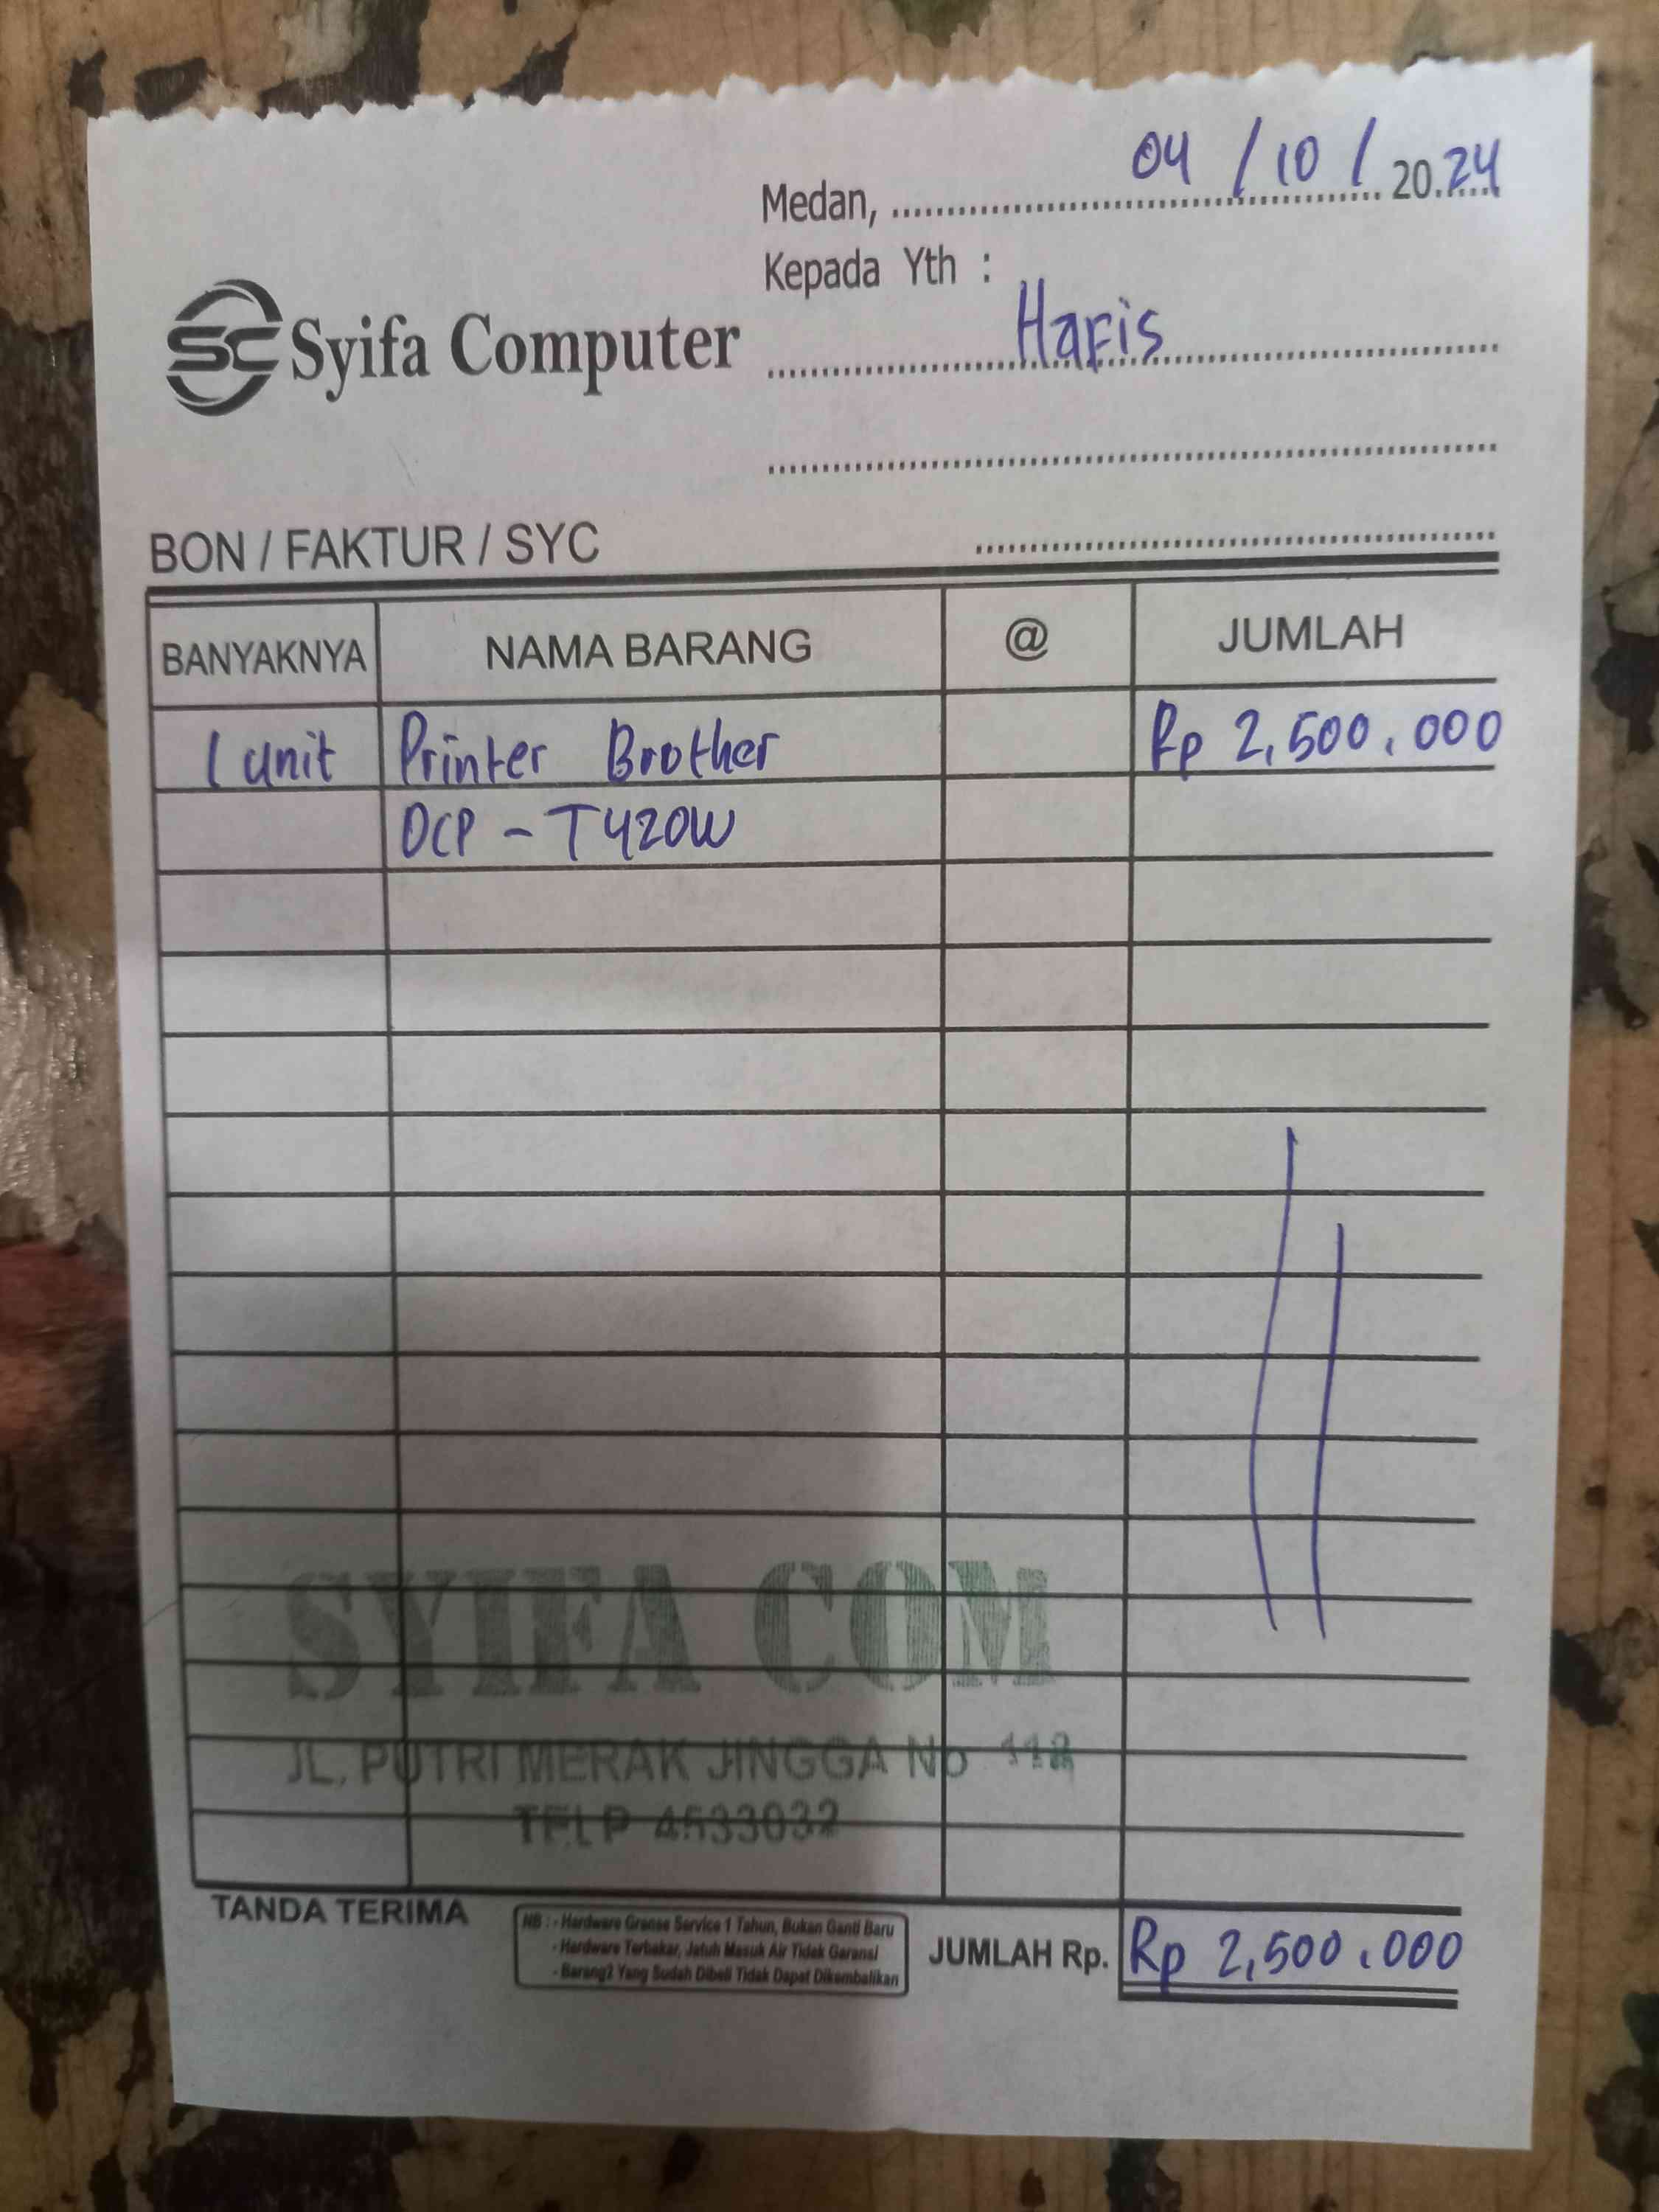 Medan, 04 / 10 / 2024
Kepada Yth :
Hafis
SC Syifa Computer
BON / FAKTUR / SYC
BANYAKNYA NAMA BARANG @ JUMLAH
1 unit Printer Brother Rp 2,500.000
DCP - T420W
SYIFA COM
JL. PUTRI MERAK JINGGA No 11
TELP 4533032
TANDA TERIMA
NB : - Hardware Granse Service 1 Tahun, Bukan Ganti Baru
- Hardware Terbakar, Jatuh Masuk Air Tidak Garansi
- Barang2 Yang Sudah Dibeli Tidak Dapat Dikembalikan
JUMLAH Rp. Rp 2,500.000